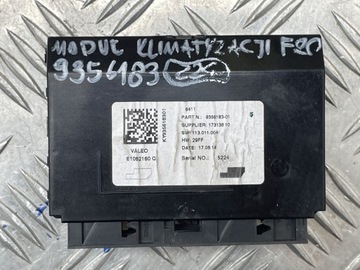 MODUŁ KLIMATYZACJI F20
9356183
6411
PART N.: 9356183-01
SUPPLIER: 173138 10
SW: 113.011.00
HW: 29FF
DATE: 17.09.14
Serial NO.: 5224
VALEO
E1062160 G